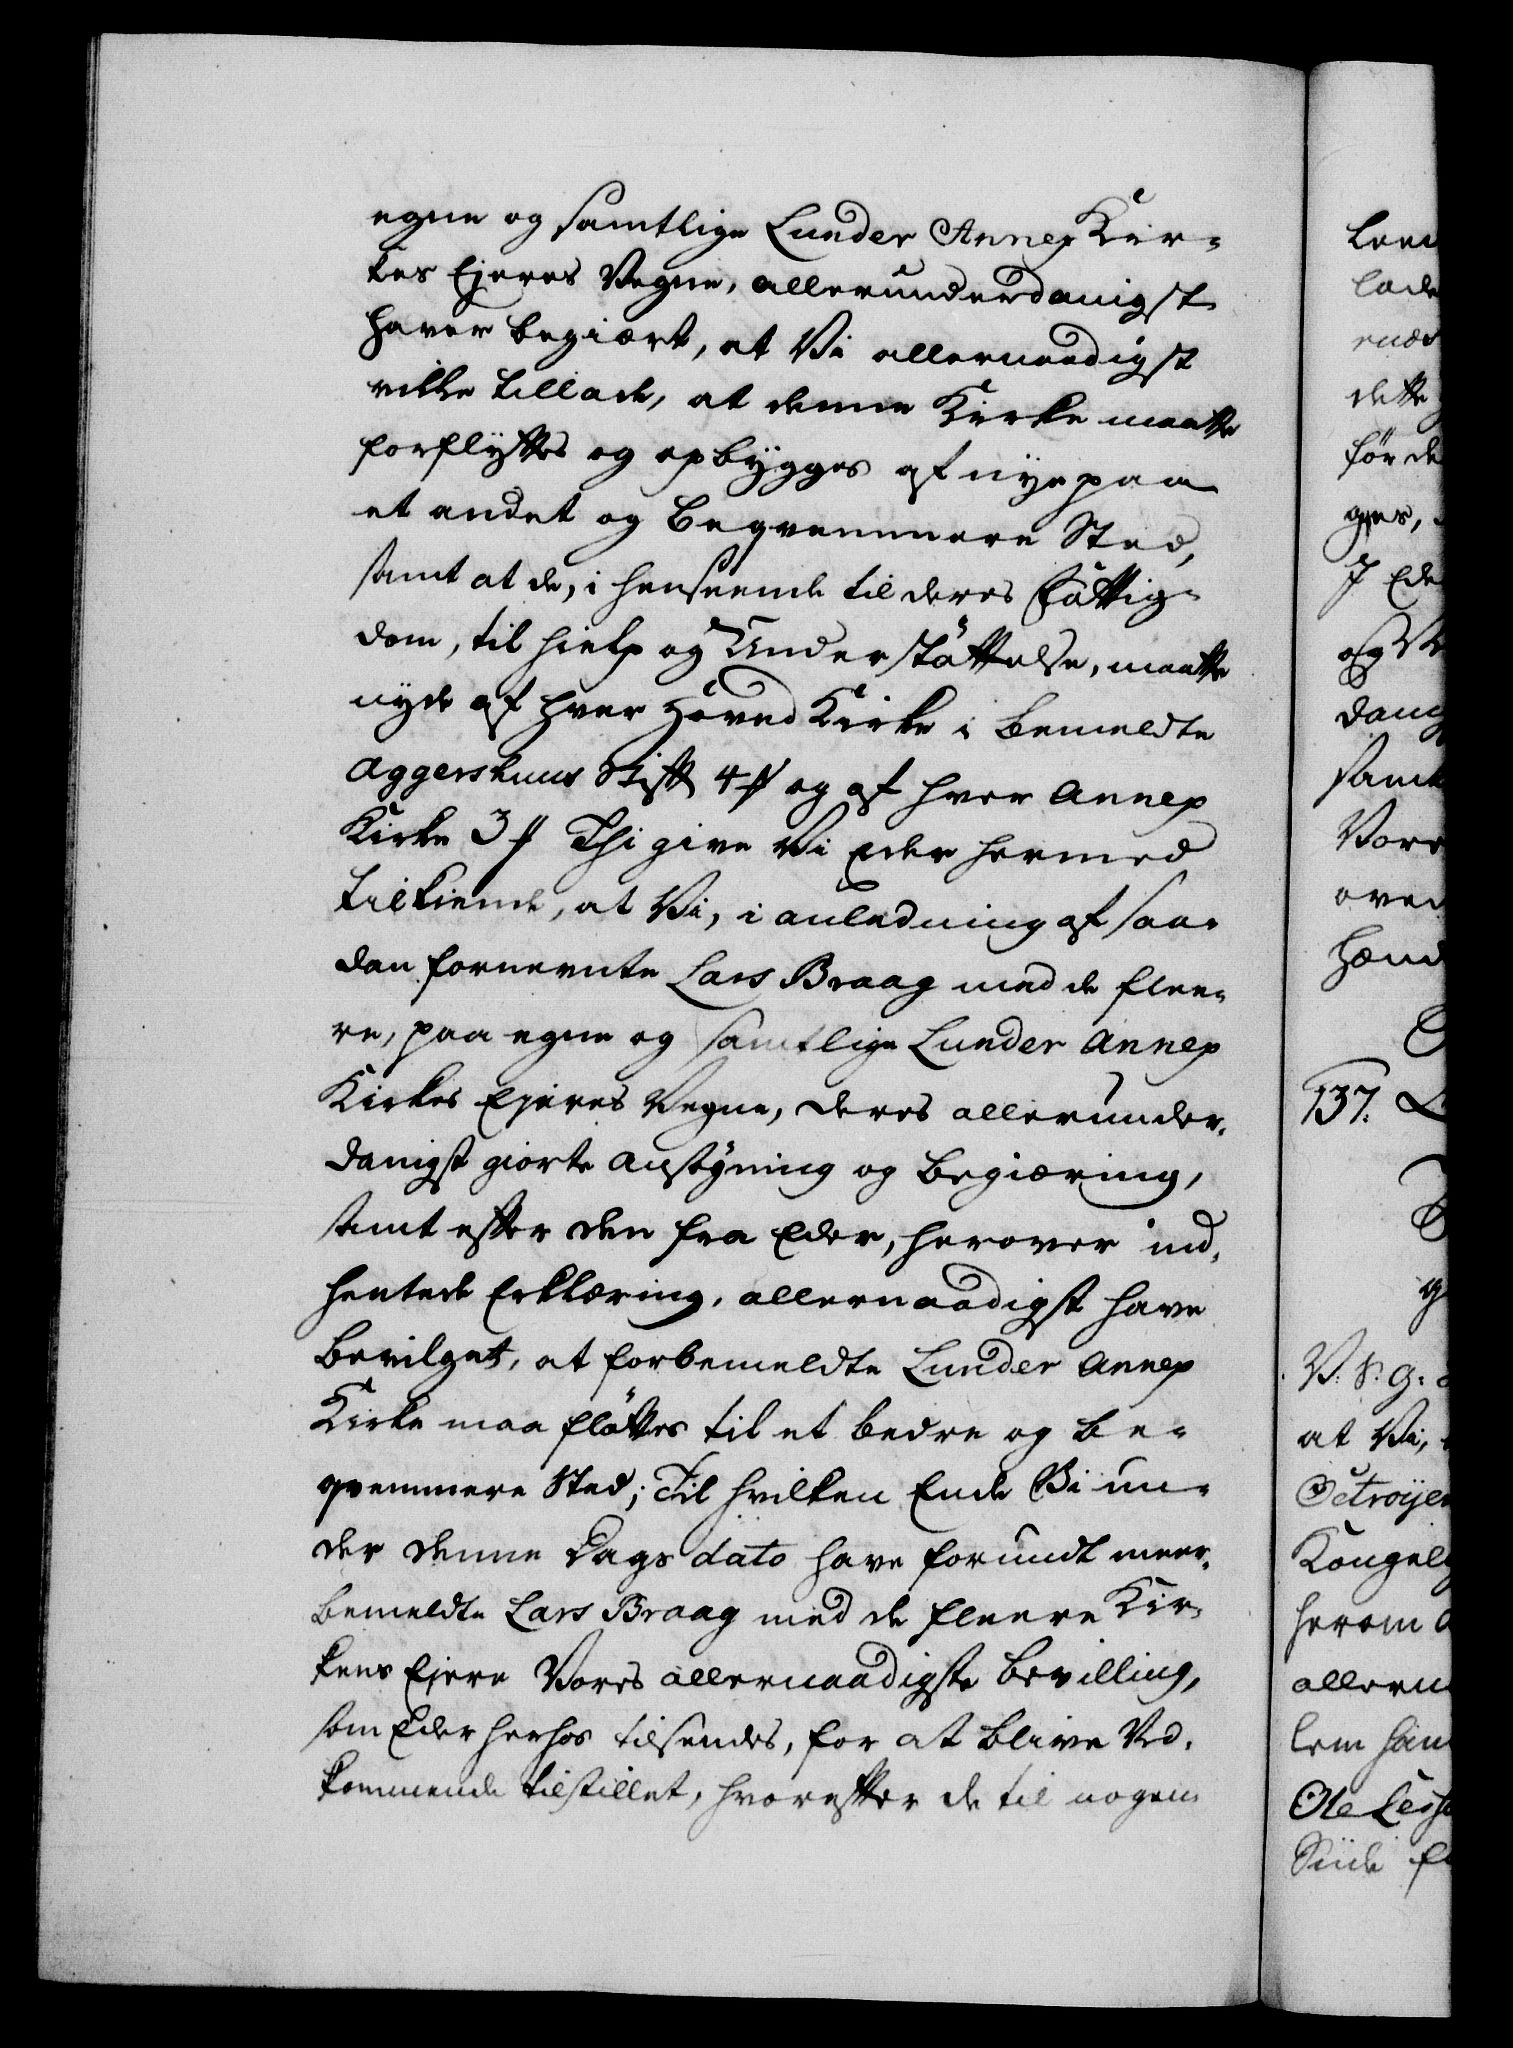 egne og samtlige Lunder Annex Kir-
kes Ejeres Vegne, allerunderdanigst
haver begiært, at Vi allernaadigst
vilde tillade, at denne Kirke maatte
forflyttes og opbygges af nye paa
et andet og beqvemmere Sted,
samt at de, i henseende til deres Fattig-
dom, til hielp og Understøttelse, maatte
nyde af hver Hoved Kirke i bemeldte
Aggershuus Stift 4 ß og af hver Annex
Kirke 3 ß Thi give Vi Eder hermed
tilkiende, at Vi, i anledning af saa-
dan fornevnte Lars Braag med de flee-
re, paa egne og samtlige Lunder Annex
Kirkes Ejeres Vegne, deres allerunder-
danigst giorte Ansøgning og begiæring,
samt efter den fra Eder, herover ind-
hentede Erklæring, allernaadigst have
bevilget, at forbemeldte Lunder Annex
Kirke maa fløttes til et bedre og be-
qvemmere Sted; Til hvilken Ende Vi un-
der denne Dags dato have forundt meer-
bemeldte Lars Braag med de fleere Kir-
kens Ejere Vores allernaadigste Bevilling,
som Eder herhos tilsendes, for at blive Ved-
kommende tilstillet, hvorefter de til nogen
lade
dette
før de
ges,
J Ede
og
samt
Vore
over
137.
V. S. G.
at Vi,
Octroyer
Kongel
herom
allern
lem
Ole